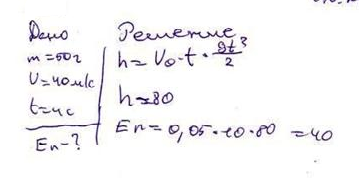 Дано
m=50г
V=40м/с
t=4с
Eп-?
Решение
h=V₀·t·gt²/2
h=80
Eп=0,05·10·80=40